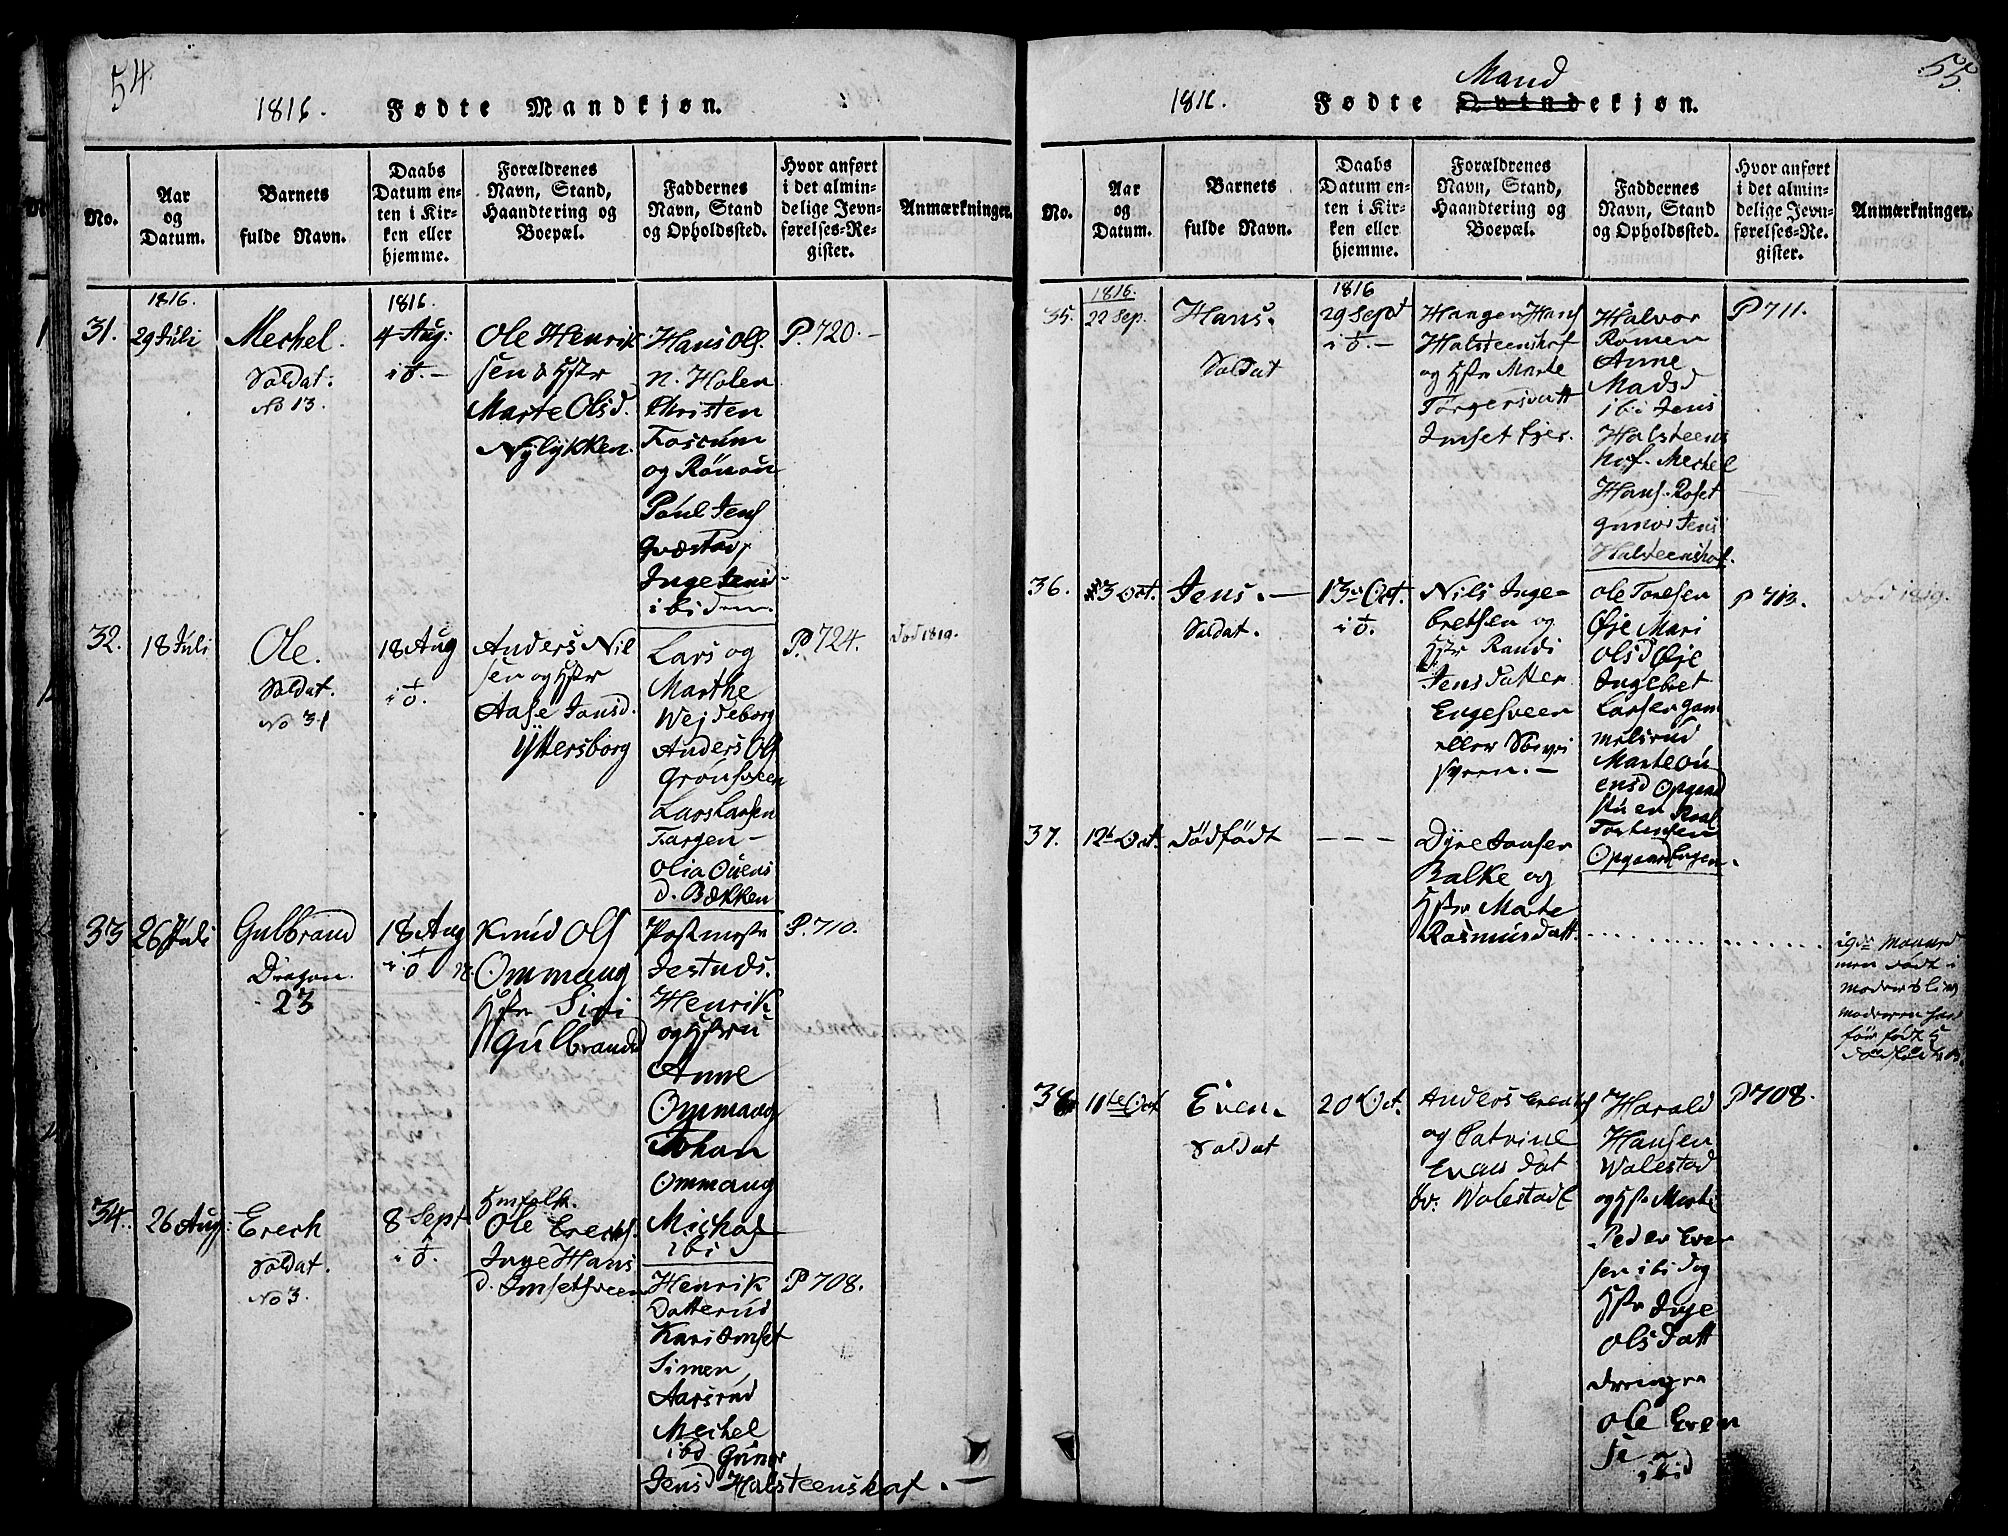 54.
1816. Fødte Mandkjøn.
No.
Aar
og
Datum.
Barnets
fulde Navn.
Daabs
Datum en-
ten i Kir-
ken eller
hjemme.
Forældrenes
Navn, Stand,
Haandtering og
Boepæl.
Faddernes
Navn, Stand
og Opholdssted.
Hvor anført
i det almin-
delige Jevn-
førelses-Re-
gister.
Anmærkninger.
31.
1816.
29 Juli
Mechel.
Soldat.
No 13.
1816.
4 Aug:
Ole Henrik
sen & Hstr
Marte Olsd.
Nylykken.
Hans Ols
n. Holen
Christen
Foscum
og Rønoun
Poul Jens
Qvæstad
Inge Jensd
ibidem.
P. 720.
32.
18 Juli
Ole.
Soldat.
No 31
18 Aug
Anders Nil
sen og Hstr
Aase Jansd.
Yttersborg
Lars og
Marthe
Wejdeborg
Anders Ols
Grønsveen
Lars Larsen
Fargen
Olia Ouens
d. Bækken
P. 724.
død 1819.
33
26 Juli
Gulbrand
Dragon.
23
18 Aug
Knud Ols
Ommang
Hstr Siri
Gulbrandsd
Postmester
Jestuds.
Henrik
og Hstru
Anne
Ommang
Johan
Ommang
Michal
ibid
P. 710.
34.
26 Aug:
Erech
Soldat.
No 3.
8 Sept
Hmfolk.
Ole Erechs.
Inge Hans
d. Imsetsveen
Henrik
Dotterud
Kari Imset
Simen
Aarsrud
Mechel
ibd Gunor
Jensd Halsteenshof.
P 708.
55.
1816. Fødte Mandkjøn.
No.
Aar
og
Datum.
Barnets
fulde Navn.
Daabs
Datum en-
ten i Kir-
ken eller
hjemme.
Forældrenes
Navn, Stand,
Haandtering og
Boepæl.
Faddernes
Navn, Stand
og Opholdssted.
Hvor anført
i det almin-
delige Jevn-
førelses-Re-
gister.
Anmærkninger.
35.
1816.
22 Sep.
Hans.
Soldat
1816
29 Sept
Haagen Hans
Halsteenshof
og Hstr Marte
Torgersdatt
Imset Ejer.
Halvor
Romen
Anne
Madsd
ibi Jens
Halsteens
hof. Mechel
Hans. Roset
gunor Jens
Halsteenshof.
P 711.
36.
3 Oct.
Jens.
Soldat.
13 Oct.
Nils Inge-
bretsen og
Hstr Randi
Jensdatter
Engesveen
eller
Ole Toresen
Øje Mari
Olsd Øje
Ingebret
Larsen gam
melsrud
Marte Ou
ensd Opgaard
Torstensen
Opgaard Engen.
P 713.
død 1819.
37.
12t Oct.
dødfødt
— — —
Dyre Jansen
Balke og
Hstr Marte
Rasmusdatt.
i 9de Maaned
men dødt i
moders liv
moderen har
før født 5
dødfødte
38
11te Oct
Even.
Soldat
20 Oct.
Anders Evens
og Catrine
Evensdat
Walestad
Harald
Hansen
Walestad
og Hstr Marte
Peder Even
sen ibid og
Hstr Inge
Olsdatt
Ole Even
se
ibid
P 708.